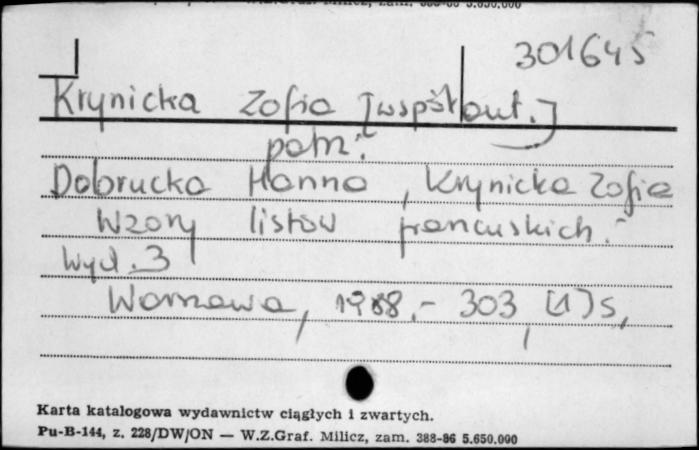 W.Z.Graf. Milicz, zam. 388-86 5.650.000
301645
Krynicka Zofia [współaut.]
patrz:
Dobrucka Hanna, Krynicka Zofia
Wzory listów francuskich.-
Wyd. 3
Warszawa, 1988.- 303, [1] s,
Karta katalogowa wydawnictw ciągłych i zwartych.
Pu-B-144, z. 228/DW/ON — W.Z.Graf. Milicz, zam. 388-86 5.650.000